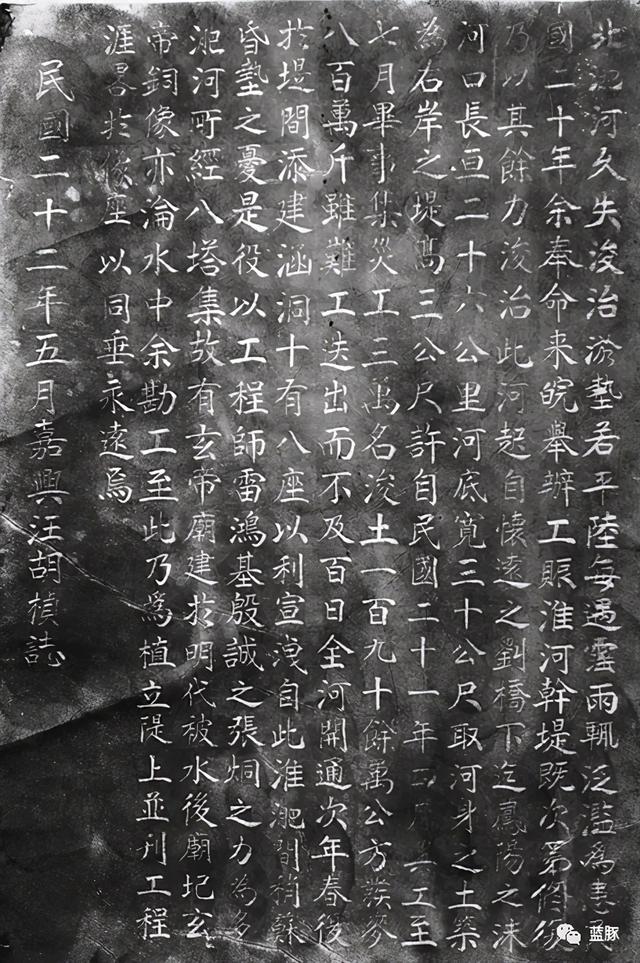 北淝河久失浚治淤墊若平陸每遇霪雨輒泛濫為患民
國二十年余奉命來皖舉辦工賑淮河幹堤既次第修復
乃以其餘力浚治此河起自懷遠之劉橋下迄鳳陽之沫
河口長亘二十六公里河底寬三十公尺取河身之土築
為右岸之堤高三公尺許自民國二十一年四月興工至
七月畢事集災工三萬名浚土一百九十餘萬公方裝麥
八百萬斤雖難工迭出而不及百日全河開通次年春復
於堤間添建涵洞十有八座以利宣洩自此淮淝間稍蘇
昏墊之憂是役以工程師雷鴻基殷誠之張炯之力為多
淝河所經八塔集故有玄帝廟建於明代被水後廟圮玄
帝銅像亦淪水中余勘工至此乃為植立隄上並刊工程
涯畧於像座以同垂永遠焉
民國二十二年五月嘉興汪胡楨誌
蓝豚